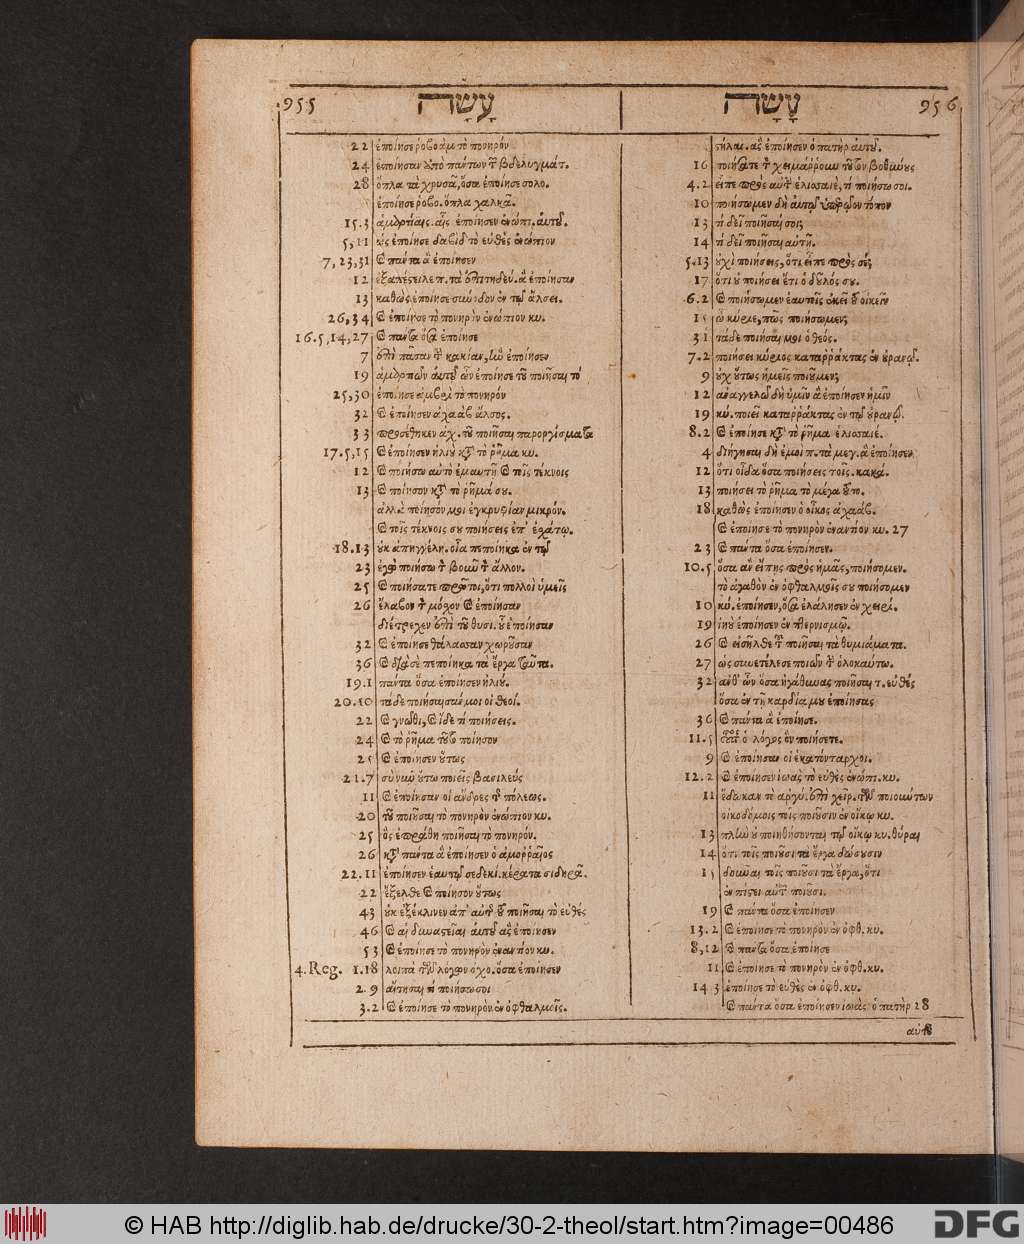 955 עָשָׂה
עָשָׂה 956
22 ἐποίησε ῥοβοὰμ τὸ πονηρόν
24 ἐποίησαν ἀπὸ πάντων τῶν βδελυγμάτ.
28 ὅπλα τὰ χρυσᾶ, ὅσα ἐποίησε σολο.
ἐποίησε ῥοβο. ὅπλα χαλκᾶ.
15.3 ἁμαρτίαις. αἷς ἐποίησεν ἐνώπι. αὐτοῦ.
5, 11 ὡς ἐποίησε δαβὶδ τὸ εὐθὲς ἐνώπιον
7, 23, 31 καὶ πάντα ἃ ἐποίησεν
12 ἐξαπέστειλε π. τὰ ἐπιτηδεύ. ἃ ἐποίησαν
13 καθὼς ἐποίησε σύνοδον ἐν τῷ ἄλσει.
26, 34 καὶ ἐποίησε τὸ πονηρὸν ἐνώπιον κυ.
16.5, 14, 27 καὶ πάντα ὅσα ἐποίησε
7 ἐπὶ πᾶσαν τὴν κακίαν, ἣν ἐποίησεν
19 ἁμαρτιῶν αὐτοῦ ὧν ἐποίησε τοῦ ποιῆσαι τὸ
25, 30 ἐποίησε ἀμβρὶ τὸ πονηρόν
32 καὶ ἐποίησεν ἀχαὰβ ἄλσος.
33 προσέθηκεν ἀχ. τοῦ ποιῆσαι παροργίσματα
17.5, 15 καὶ ἐποίησεν ἠλιοὺ κατὰ τὸ ῥῆμα κυ.
12 καὶ ποιήσω αὐτὸ ἐμαυτῇ καὶ τοῖς τέκνοις
13 καὶ ποίησον κατὰ τὸ ῥῆμά σου.
ἀλλὰ ποίησόν μοι ἐγκρυφίαν μικρόν.
καὶ τοῖς τέκνοις σου ποιήσεις ἐπ' ἐσχάτῳ.
18.13 οὐκ ἀπηγγέλη. οἷα πεποίηκα ἐν τῷ
23 ἐγὼ ποιήσω τὸν βοῦν τὸν ἄλλον.
25 καὶ ποιήσατε πρῶτοι, ὅτι πολλοὶ ὑμεῖς
26 ἔλαβον τὸν μόσχον καὶ ἐποίησαν
διέτρεχεν ἐπὶ τοῦ θυσι. οὗ ἐποίησαν
32 καὶ ἐποίησε θάλασσαν χωροῦσαν
36 καὶ διὰ σὲ πεποίηκα τὰ ἔργα ταῦτα.
19.1 πάντα ὅσα ἐποίησεν ἠλιού.
20.10 τάδε ποιήσαισάν μοι οἱ θεοί.
22 καὶ γνῶθι, καὶ ἴδε τί ποιήσεις.
24 καὶ τὸ ῥῆμα τοῦτο ποίησον
25 καὶ ἐποίησεν οὕτως
21.7 σὺ νῦν οὕτω ποιεῖς βασιλεύς
11 καὶ ἐποίησαν οἱ ἄνδρες τῆς πόλεως.
20 τοῦ ποιῆσαι τὸ πονηρὸν ἐνώπιον κυ.
25 ὃς ἐπράθη ποιῆσαι τὸ πονηρόν.
26 κατὰ πάντα ἃ ἐποίησεν ὁ ἀμορραῖος
22.11 ἐποίησεν ἑαυτῷ σεδεκί. κέρατα σιδηρᾶ.
22 ἔξελθε καὶ ποίησον οὕτως
43 οὐκ ἐξέκλινεν ἀπ' αὐτῆς τοῦ ποιῆσαι τὸ εὐθές
46 καὶ αἱ δυναστεῖαι αὐτοῦ ἃς ἐποίησεν
53 καὶ ἐποίησε τὸ πονηρὸν ἐναντίον κυ.
4. Reg. 1.18 λοιπὰ τῶν λόγων ὀχο. ὅσα ἐποίησεν
2.9 αἴτησαι τί ποιήσω σοι
3.2 καὶ ἐποίησε τὸ πονηρὸν ἐν ὀφθαλμοῖς.
στήλας. ἃς ἐποίησεν ὁ πατὴρ αὐτοῦ.
16 ποιήσατε τὸν χειμάρρουν τοῦτον βοθύνους
4.2 εἶπε πρὸς αὐτὴν ἐλισσαιέ, τί ποιήσω σοι.
10 ποιήσωμεν δὴ αὐτῷ ὑπερῷον τόπον
13 τί δεῖ ποιῆσαί σοι;
14 τί δεῖ ποιῆσαι αὐτῇ.
5.13 οὐχὶ ποιήσεις, ὅτι εἶπε πρὸς σέ;
17 ὅτι οὐ ποιήσει ἔτι ὁ δοῦλός σου.
6.2 καὶ ποιήσωμεν ἑαυτοῖς ἐκεῖ τοῦ οἰκεῖν
15 ὦ κύριε, πῶς ποιήσωμεν;
31 τάδε ποιήσαι μοι ὁ θεός.
7.2 ποιήσει κύριος καταρράκτας ἐν οὐρανῷ.
9 οὐχ οὕτως ἡμεῖς ποιοῦμεν;
12 ἀναγγελῶ δὴ ὑμῖν ἃ ἐποίησεν ἡμῖν
19 κύ. ποιεῖ καταρράκτας ἐν τῷ οὐρανῷ.
8.2 καὶ ἐποίησε κατὰ τὸ ῥῆμα ἐλισσαιέ.
4 διήγησαι δή ἐμοι π. τὰ μεγ. ἃ ἐποίησεν
12 ὅτι οἶδα ὅσα ποιήσεις τοῖς. κακά.
13 ποιήσει τὸ ῥῆμα τὸ μέγα τοῦτο.
18 καθὼς ἐποίησεν ὁ οἶκος ἀχαάβ.
καὶ ἐποίησε τὸ πονηρὸν ἐναντίον κυ. 27
23 καὶ πάντα ὅσα ἐποίησεν.
10.5 ὅσα ἂν εἴπῃς πρὸς ἡμᾶς, ποιήσομεν.
τὸ ἀγαθὸν ἐν ὀφθαλμοῖς σου ποιήσομεν
10 κύ. ἐποίησεν, ὅσα ἐλάλησεν ἐν χειρί.
19 ἰηοὺ ἐποίησεν ἐν πτερνισμῷ.
26 καὶ εἰσῆλθε τοῦ ποιῆσαι τὰ θυμιάματα.
27 ὡς συνετέλεσε ποιῶν τὴν ὁλοκαύτω.
32 ἀνθ' ὧν ὅσα ἠγάθυνας ποιῆσαι τ. εὐθές
ὅσα ἐν τῇ καρδίᾳ μου ἐποίησας
36 καὶ πάντα ἃ ἐποίησε.
11.5 οὗτος ὁ λόγος ὃν ποιήσετε.
9 καὶ ἐποίησαν οἱ ἑκατόνταρχοι.
12.2 καὶ ἐποίησεν ἰωὰς τὸ εὐθὲς ἐνώπι. κυ.
11 ἔδωκαν τὸ ἀργύ. ἐπὶ χεῖρ. τῶν ποιούντων
οἰκοδόμοις τοῖς ποιοῦσιν ἐν οἴκῳ κυ.
13 πλὴν οὐ ποιηθήσονται τῷ οἴκῳ κυ. θύραι
14 ὅτι τοῖς ποιοῦσι τὰ ἔργα δώσουσιν
15 δοῦναι τοῖς ποιοῦσι τὰ ἔργα, ὅτι
ἐν πίστει αὐτῶν ποιοῦσι.
19 καὶ πάντα ὅσα ἐποίησεν
13.2 καὶ ἐποίησε τὸ πονηρὸν ἐν ὀφθ. κυ.
8, 12 καὶ πάντα ὅσα ἐποίησε
11 καὶ ἐποίησε τὸ πονηρὸν ἐν ὀφθ. κυ.
14.3 ἐποίησε τὸ εὐθὲς ἐν ὀφθ. κυ.
καὶ πάντα ὅσα ἐποίησεν ἰωὰς ὁ πατὴρ 28
αὐτοῦ
© HAB http://diglib.hab.de/drucke/30-2-theol/start.htm?image=00486
DFG